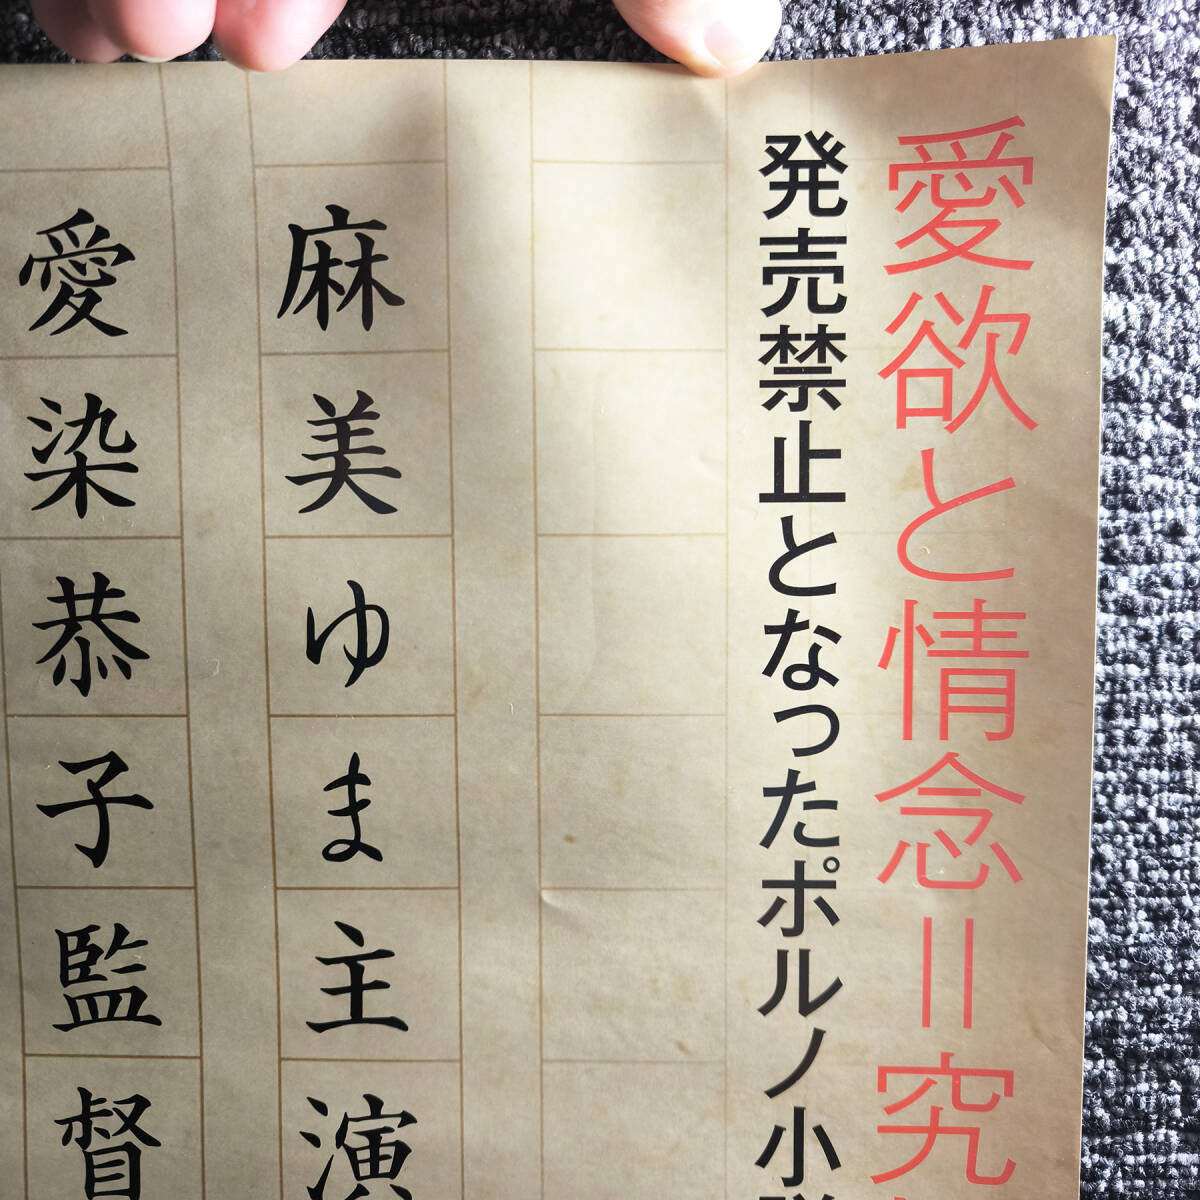 愛欲と情念＝究
発売禁止となったポルノ小説
麻美ゆま主演
愛染恭子監督